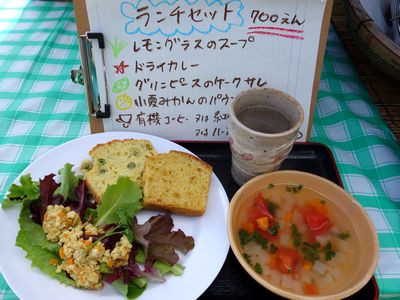 ランチセット 700えん
レモングラスのスープ
ドライカレー
グリンピースのケークサレ
小夏みかんのパウ
有機コーヒー 又は 紅
又は ハー